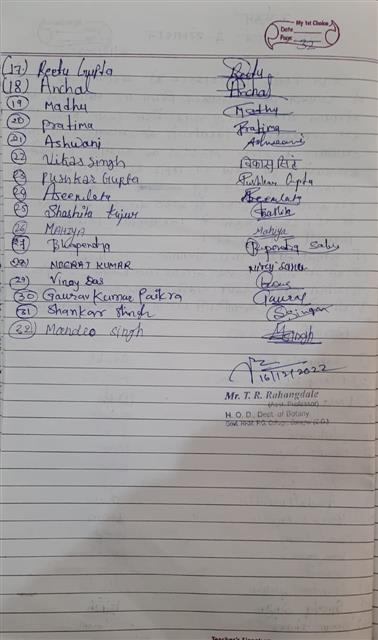 My 1st Choice
Date
Page 32
(17) Reetu Gupta Reetu
(18) Anchal Anchal
(19) Madhu Madhu
(20) Pratima Pratima
(21) Ashwani Ashwani
(22) Vikas Singh विकास सिंह
(23) Pushkar Gupta Pushkar Gupta
(24) Aseenlata Aseenlata
(25) Shashita Kujur
(26) MAHIYA Mahiya
(27) Bhupendra Bhupendra Sahu
(28) NEERAJ KUMAR
(29) Vinay Das
(30) Gaurav Kumar Paikra Gaurav
(31) Shankar Singh
(32) Mandeo Singh
16/12/2022
Mr. T. R. Rahangdale
(Asst. Professor)
H. O. D., Dept. of Botany
Teacher's Signature